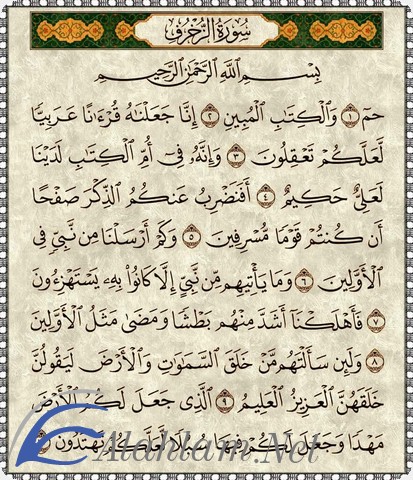 سُورَةُ الزُّخْرُفِ
بِسْمِ اللَّهِ الرَّحْمَٰنِ الرَّحِيمِ
حمٓ ١ وَالْكِتَابِ الْمُبِينِ ٢ إِنَّا جَعَلْنَاهُ قُرْءَانًا عَرَبِيًّا
لَّعَلَّكُمْ تَعْقِلُونَ ٣ وَإِنَّهُ فِىٓ أُمِّ الْكِتَابِ لَدَيْنَا
لَعَلِىٌّ حَكِيمٌ ٤ أَفَنَضْرِبُ عَنكُمُ الذِّكْرَ صَفْحًا
أَن كُنتُمْ قَوْمًا مُّسْرِفِينَ ٥ وَكَمْ أَرْسَلْنَا مِن نَّبِىٍّ فِى
الْأَوَّلِينَ ٦ وَمَا يَأْتِيهِم مِّن نَّبِىٍّ إِلَّا كَانُوا بِهِۦ يَسْتَهْزِءُونَ
٧ فَأَهْلَكْنَآ أَشَدَّ مِنْهُم بَطْشًا وَمَضَىٰ مَثَلُ الْأَوَّلِينَ
٨ وَلَئِن سَأَلْتَهُم مَّنْ خَلَقَ السَّمَٰوَٰتِ وَالْأَرْضَ لَيَقُولُنَّ
خَلَقَهُنَّ الْعَزِيزُ الْعَلِيمُ ٩ الَّذِى جَعَلَ لَكُمُ الْأَرْضَ
مَهْدًا وَجَعَلَ لَكُمْ فِيهَا سُبُلًا لَّعَلَّكُمْ تَهْتَدُونَ ١٠
Alahlam.Net